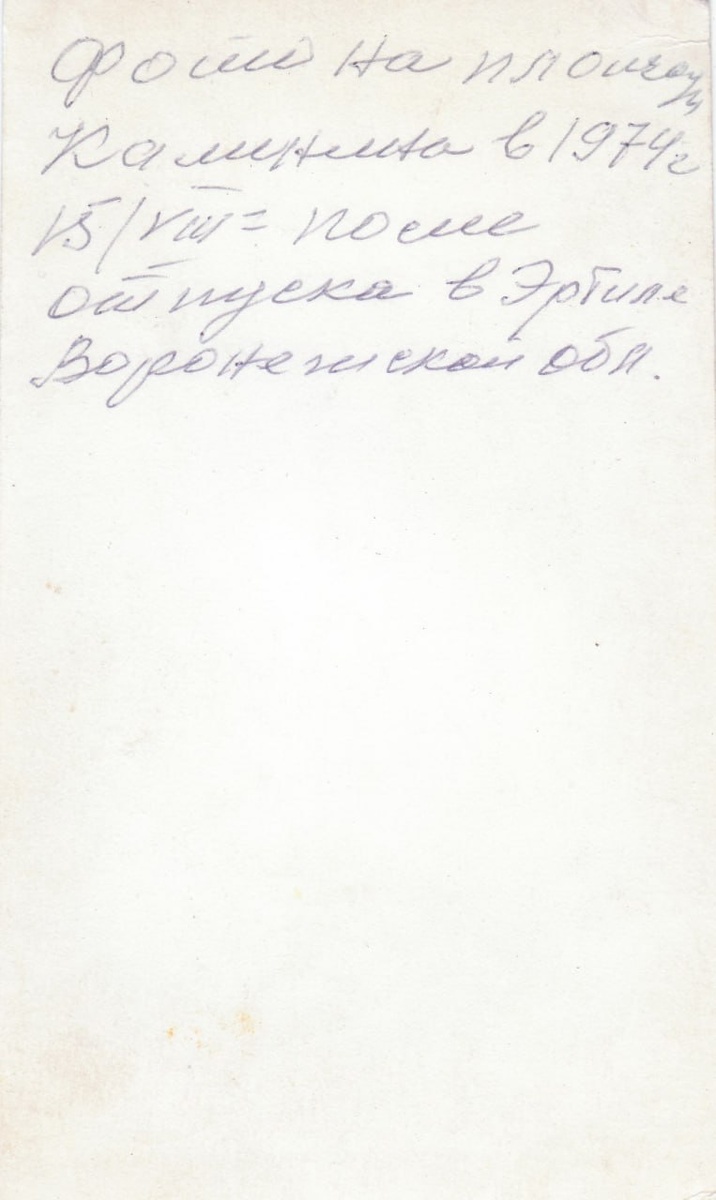 Фото на площади
Калинина в 1974 г
15/VIII = после
отпуска в Эртиле
Воронежской обл.